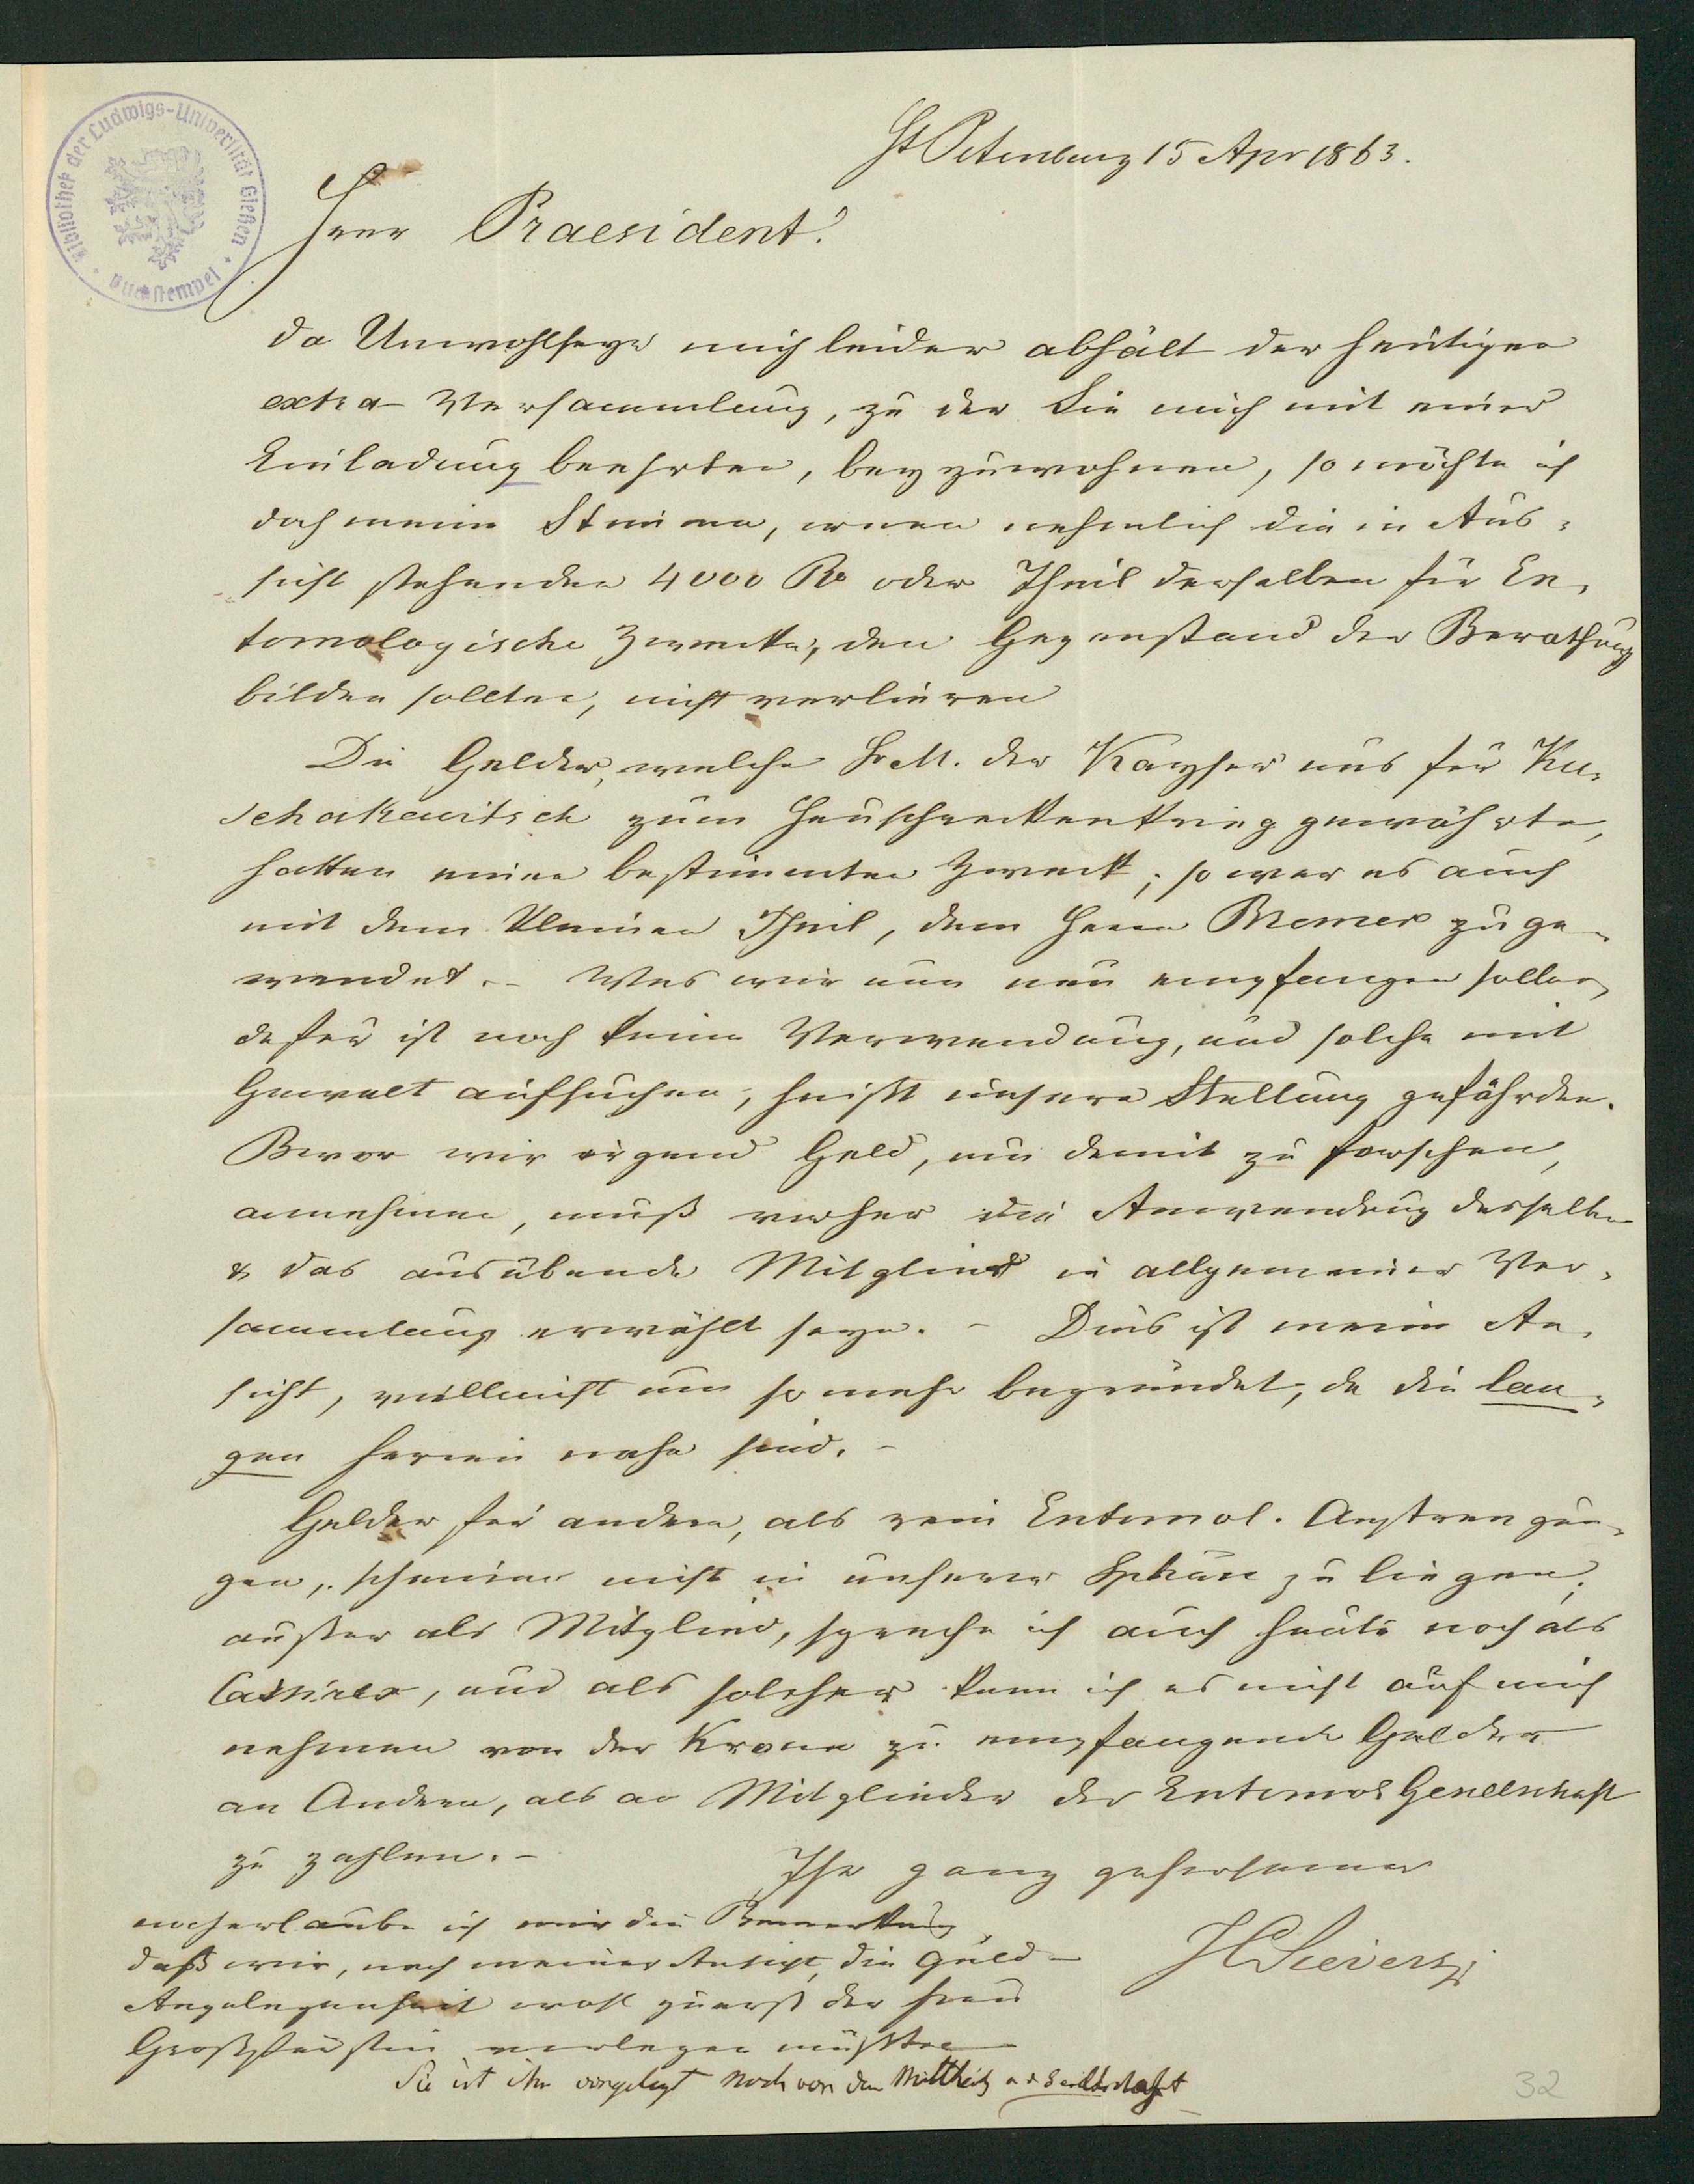 Bibliothek der Ludwigs-Universität Gießen
Buchstempel
St Petersburg 15 Apr 1863.
Herr Praesident!
da Unwohlseyn mich leider abhält der heutigen
extra Versammlung, zu der Sie mich mit einer
Einladung beehrten, beyzuwohnen, so möchte ich
doch meine Stimme, wenn nehmlich die in Aus-
sicht stehenden 4000 Ro oder Theil derselben für En-
tomologische Zwecke, den Gegenstand der Berathung
bilden sollten, nicht verlieren
Die Gelder, welche Sr M. der Kayser uns für Ku-
schakewitsch zum Heuschreckenkrieg gewährte,
hatten einen bestimmten Zweck; so war es auch
mit dem kleinen Theil, dem Herrn Bremer zuge-
wendet. – Was wir nun neu empfangen sollen,
dafür ist noch keine Verwendung, und solche mit
Gewalt aufsuchen, heißt unsere Stellung gefährden.
Bevor wir irgend Geld, um damit zu forschen,
annehmen, muß vorher die Anwendung desselben
& das ausübende Mitglied in allgemeiner Ver-
sammlung erwählt seyn. – Dies ist meine An-
sicht, vielleicht um so mehr begründet, da die lan-
gen Ferien nahe sind. –
Gelder für andere, als rein Entomol. Anstrengun-
gen, scheinen nicht in unserer Sphäre zu liegen;
außer als Mitglied, spreche ich auch heute noch als
Cassirer, und als solcher kann ich es nicht auf mich
nehmen von der Krone zu empfangende Gelder
an Andere, als an Mitglieder der Entomol Gesellschaft
zu zahlen. –
Ihr ganz gehorsamer
HSievers
noch erlaube ich mir die Bemerkung
daß wir, nach meiner Ansicht, die Geld-
Angelegenheit wohl zuerst der Frau
Großfürstin vorlegen müßten
Sie ist ihr vorgelegt noch von den
32